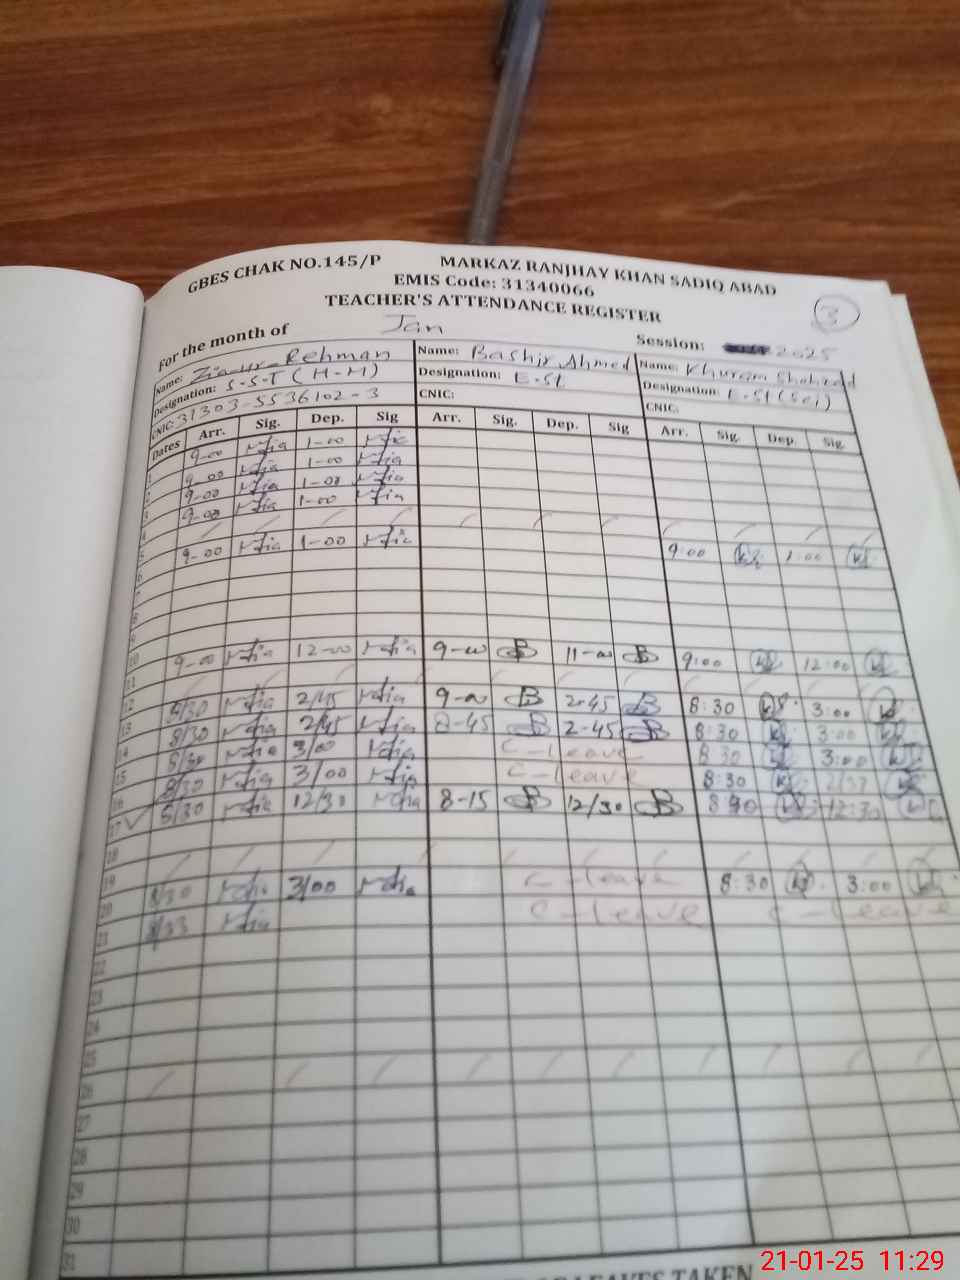 GBES CHAK NO.145/P MARKAZ RANJHAY KHAN SADIQ ABAD
EMIS Code: 31340066
TEACHER'S ATTENDANCE REGISTER
3
For the month of Jan Session: 2025
Name: Zia-ur-Rehman Name: Bashir Ahmed Name: Khuram Shahzad
Designation: S-S-T (H-M) Designation: E.St Designation: E.St (Sci)
CNIC: 31303-5536102-3 CNIC: CNIC:
Dates Arr. Sig. Dep. Sig Arr. Sig. Dep. Sig Arr. Sig. Dep. Sig
1 9-00 1-00
2 9-00 1-00
3 9-00 1-00
4 9-00 1-00
5
6 9-00 1-00 9:00 1:00
7
8
9
10
11 9-00 12-00 9-00 11-00 9:00 12:00
12
13 8/30 2/45 9-00 2-45 8:30 3:00
14 8/30 2/45 8-45 2-45 8:30 3:00
15 8/30 3/00 C-Leave 8:30 3:00
16 8/30 3/00 C-Leave 8:30
17 8/30 12/30 8-15 12/30 8:30 12:30
18
19
20 8/30 3/00 C-Leave 8:30 3:00
21 8/33 C-Leave C-Leave
22
23
24
25
26
27
28
29
30
31
LEAVES TAKEN
21-01-25 11:29